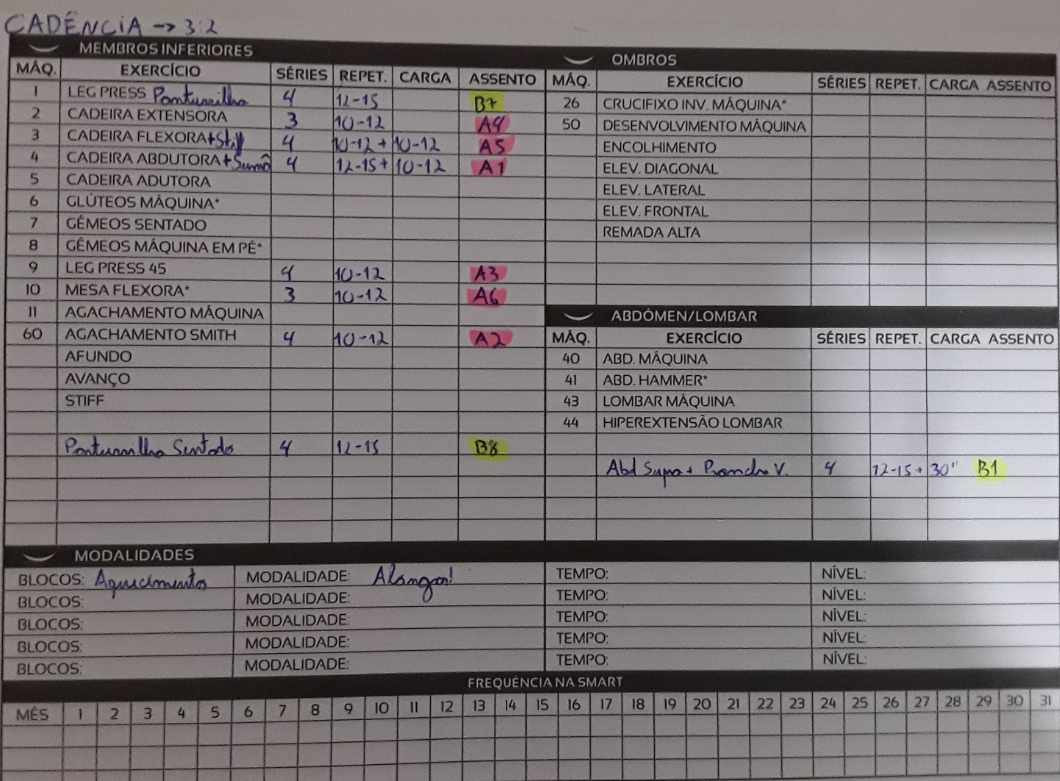 CADÊNCIA → 3:2
MEMBROS INFERIORES
MÁQ. EXERCÍCIO SÉRIES REPET. CARGA ASSENTO
1 LEG PRESS Panturrilha 4 12-15 B7
2 CADEIRA EXTENSORA 3 10-12 A4
3 CADEIRA FLEXORA + Stiff 4 10-12 + 10-12 A5
4 CADEIRA ABDUTORA + Sumô 4 12-15 + 10-12 A1
5 CADEIRA ADUTORA
6 GLÚTEOS MÁQUINA*
7 GÊMEOS SENTADO
8 GÊMEOS MÁQUINA EM PÉ*
9 LEG PRESS 45 4 10-12 A3
10 MESA FLEXORA* 3 10-12 A6
11 AGACHAMENTO MÁQUINA
60 AGACHAMENTO SMITH 4 10-12 A2
AFUNDO
AVANÇO
STIFF
Panturrilha Sentado 4 12-15 B8
OMBROS
MÁQ. EXERCÍCIO SÉRIES REPET. CARGA ASSENTO
26 CRUCIFIXO INV. MÁQUINA*
50 DESENVOLVIMENTO MÁQUINA
ENCOLHIMENTO
ELEV. DIAGONAL
ELEV. LATERAL
ELEV. FRONTAL
REMADA ALTA
ABDÔMEN/LOMBAR
MÁQ. EXERCÍCIO SÉRIES REPET. CARGA ASSENTO
40 ABD. MÁQUINA
41 ABD. HAMMER*
43 LOMBAR MÁQUINA
44 HIPEREXTENSÃO LOMBAR
Abd Supra + Prancha V. 4 12-15 + 30" B1
MODALIDADES
BLOCOS: Aquecimento MODALIDADE: Alongar! TEMPO: NÍVEL:
BLOCOS: MODALIDADE: TEMPO: NÍVEL:
BLOCOS: MODALIDADE: TEMPO: NÍVEL:
BLOCOS: MODALIDADE: TEMPO: NÍVEL:
BLOCOS: MODALIDADE: TEMPO: NÍVEL:
FREQUÊNCIA NA SMART
MÊS 1 2 3 4 5 6 7 8 9 10 11 12 13 14 15 16 17 18 19 20 21 22 23 24 25 26 27 28 29 30 31